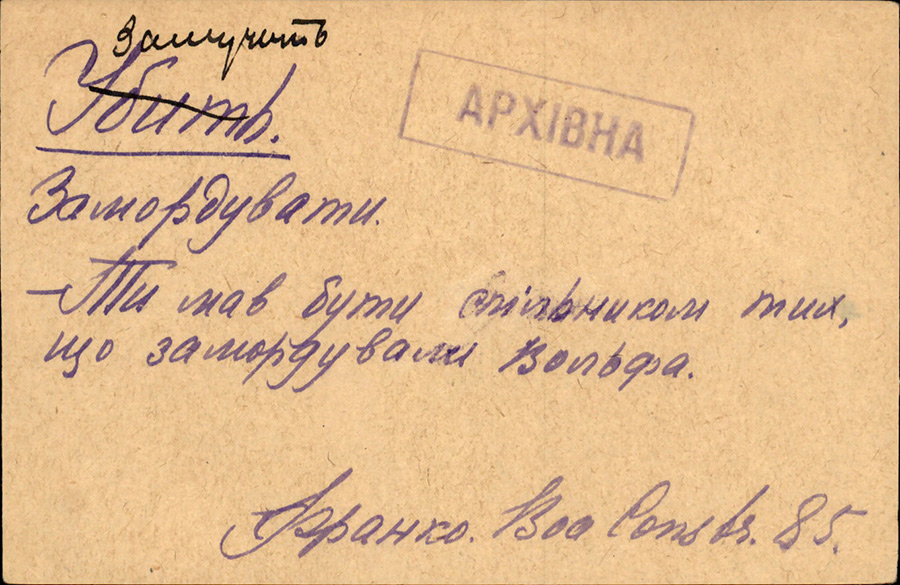 Замучить
Убить.
АРХІВНА
Замордувати.
— Ти мав бути спільником тих,
що замордували Вольфа.
Франко. Boa Constr. 85.